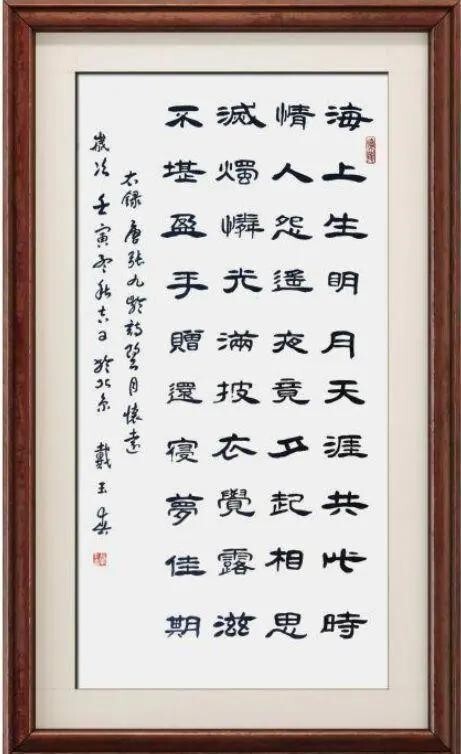 海上生明月天涯共此時
情人怨遙夜竟夕起相思
滅燭憐光滿披衣覺露滋
不堪盈手贈還寢夢佳期
右録 唐張九齡詩望月懷遠
歲次壬寅秋吉日於北京 戴玉